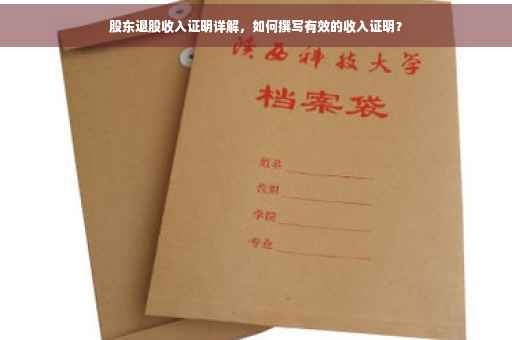 股东退股收入证明详解，如何撰写有效的收入证明？
陕西科技大学
档案袋
姓名
学院
专业